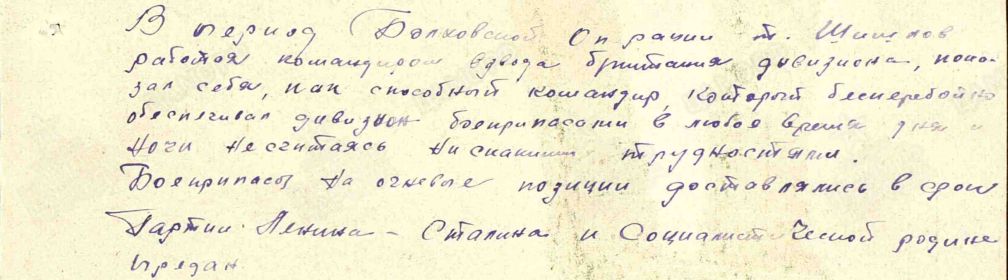 В период Болховской Операции т. Шишлов
работая командиром взвода британия дивизиона, пока-
зал себя, как способный командир, который бесперебойно
обеспечивал дивизион боеприпасами в любое время дня и
ночи не считаясь ни скакими трудностями.
Боеприпасы на огневые позиции доставлялись в срок
Партии Ленина - Сталина и Социалистической родине
предан